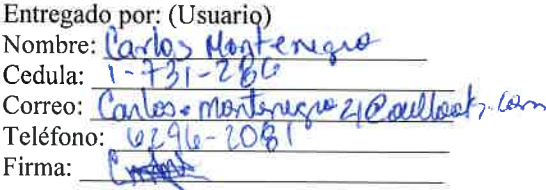 Entregado por: (Usuario)
Nombre: Carlos Montenegro
Cedula: 1-731-286
Correo: Carlos.montenegro21@outlook.com
Teléfono: 6296-2081
Firma: